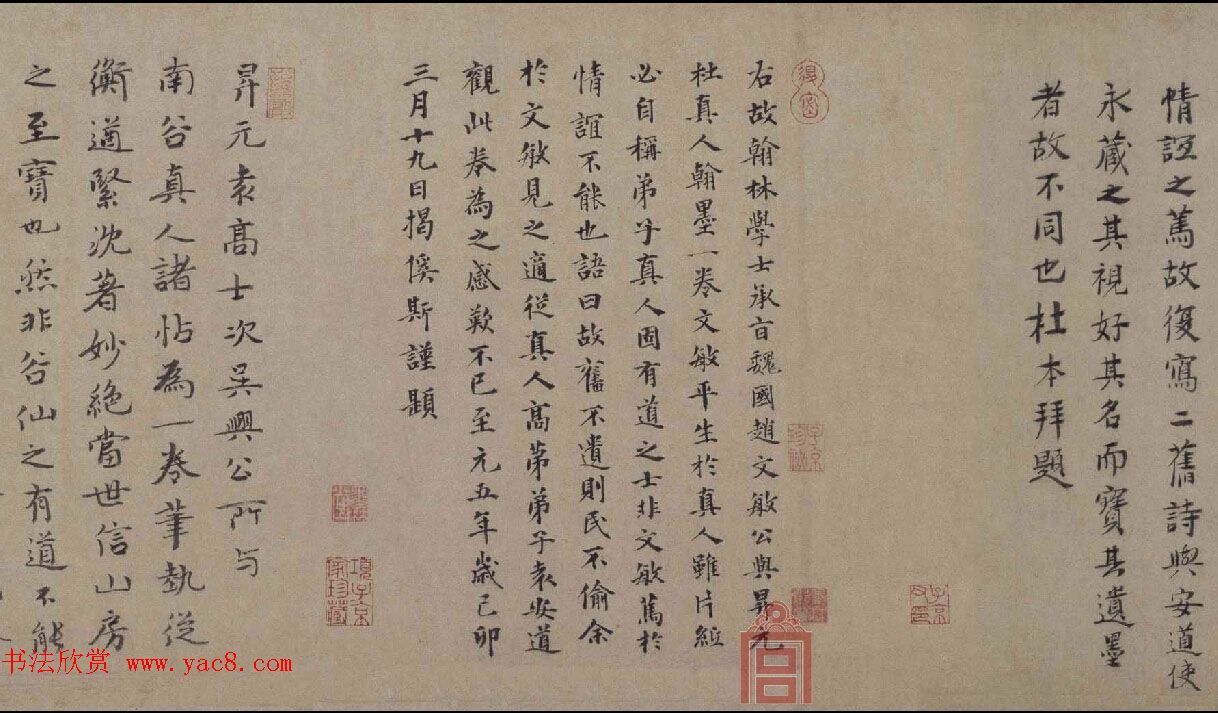 情誼之篤故復寫二舊詩與安道使
永藏之其視好其名而寶其遺墨
者故不同也杜本拜題
右故翰林學士承旨魏國趙文敏公與昇元
杜真人翰墨一卷文敏平生於真人雖片紙
必自稱弟子真人固有道之士非文敏篤於
情誼不能也語曰故舊不遺則民不偷余
於文敏見之適從真人高弟弟子袁安道
觀此卷為之感歎不已至元五年歲己卯
三月十九日揭傒斯謹題
昇元袁高士次吳興公所与
南谷真人諸帖為一卷筆執從
衡遒緊沈著妙絕當世信山房
之至寶也然非谷仙之有道不能
項子京
家珍藏
子京
书法欣赏 www.yac8.com